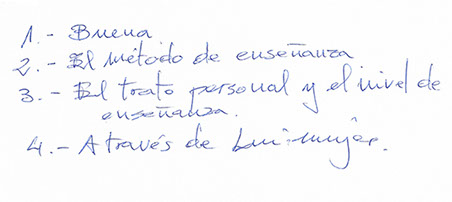 1.- Buena
2.- El método de enseñanza
3.- El trato personal y el nivel de
enseñanza.
4.- A través de mi mujer.